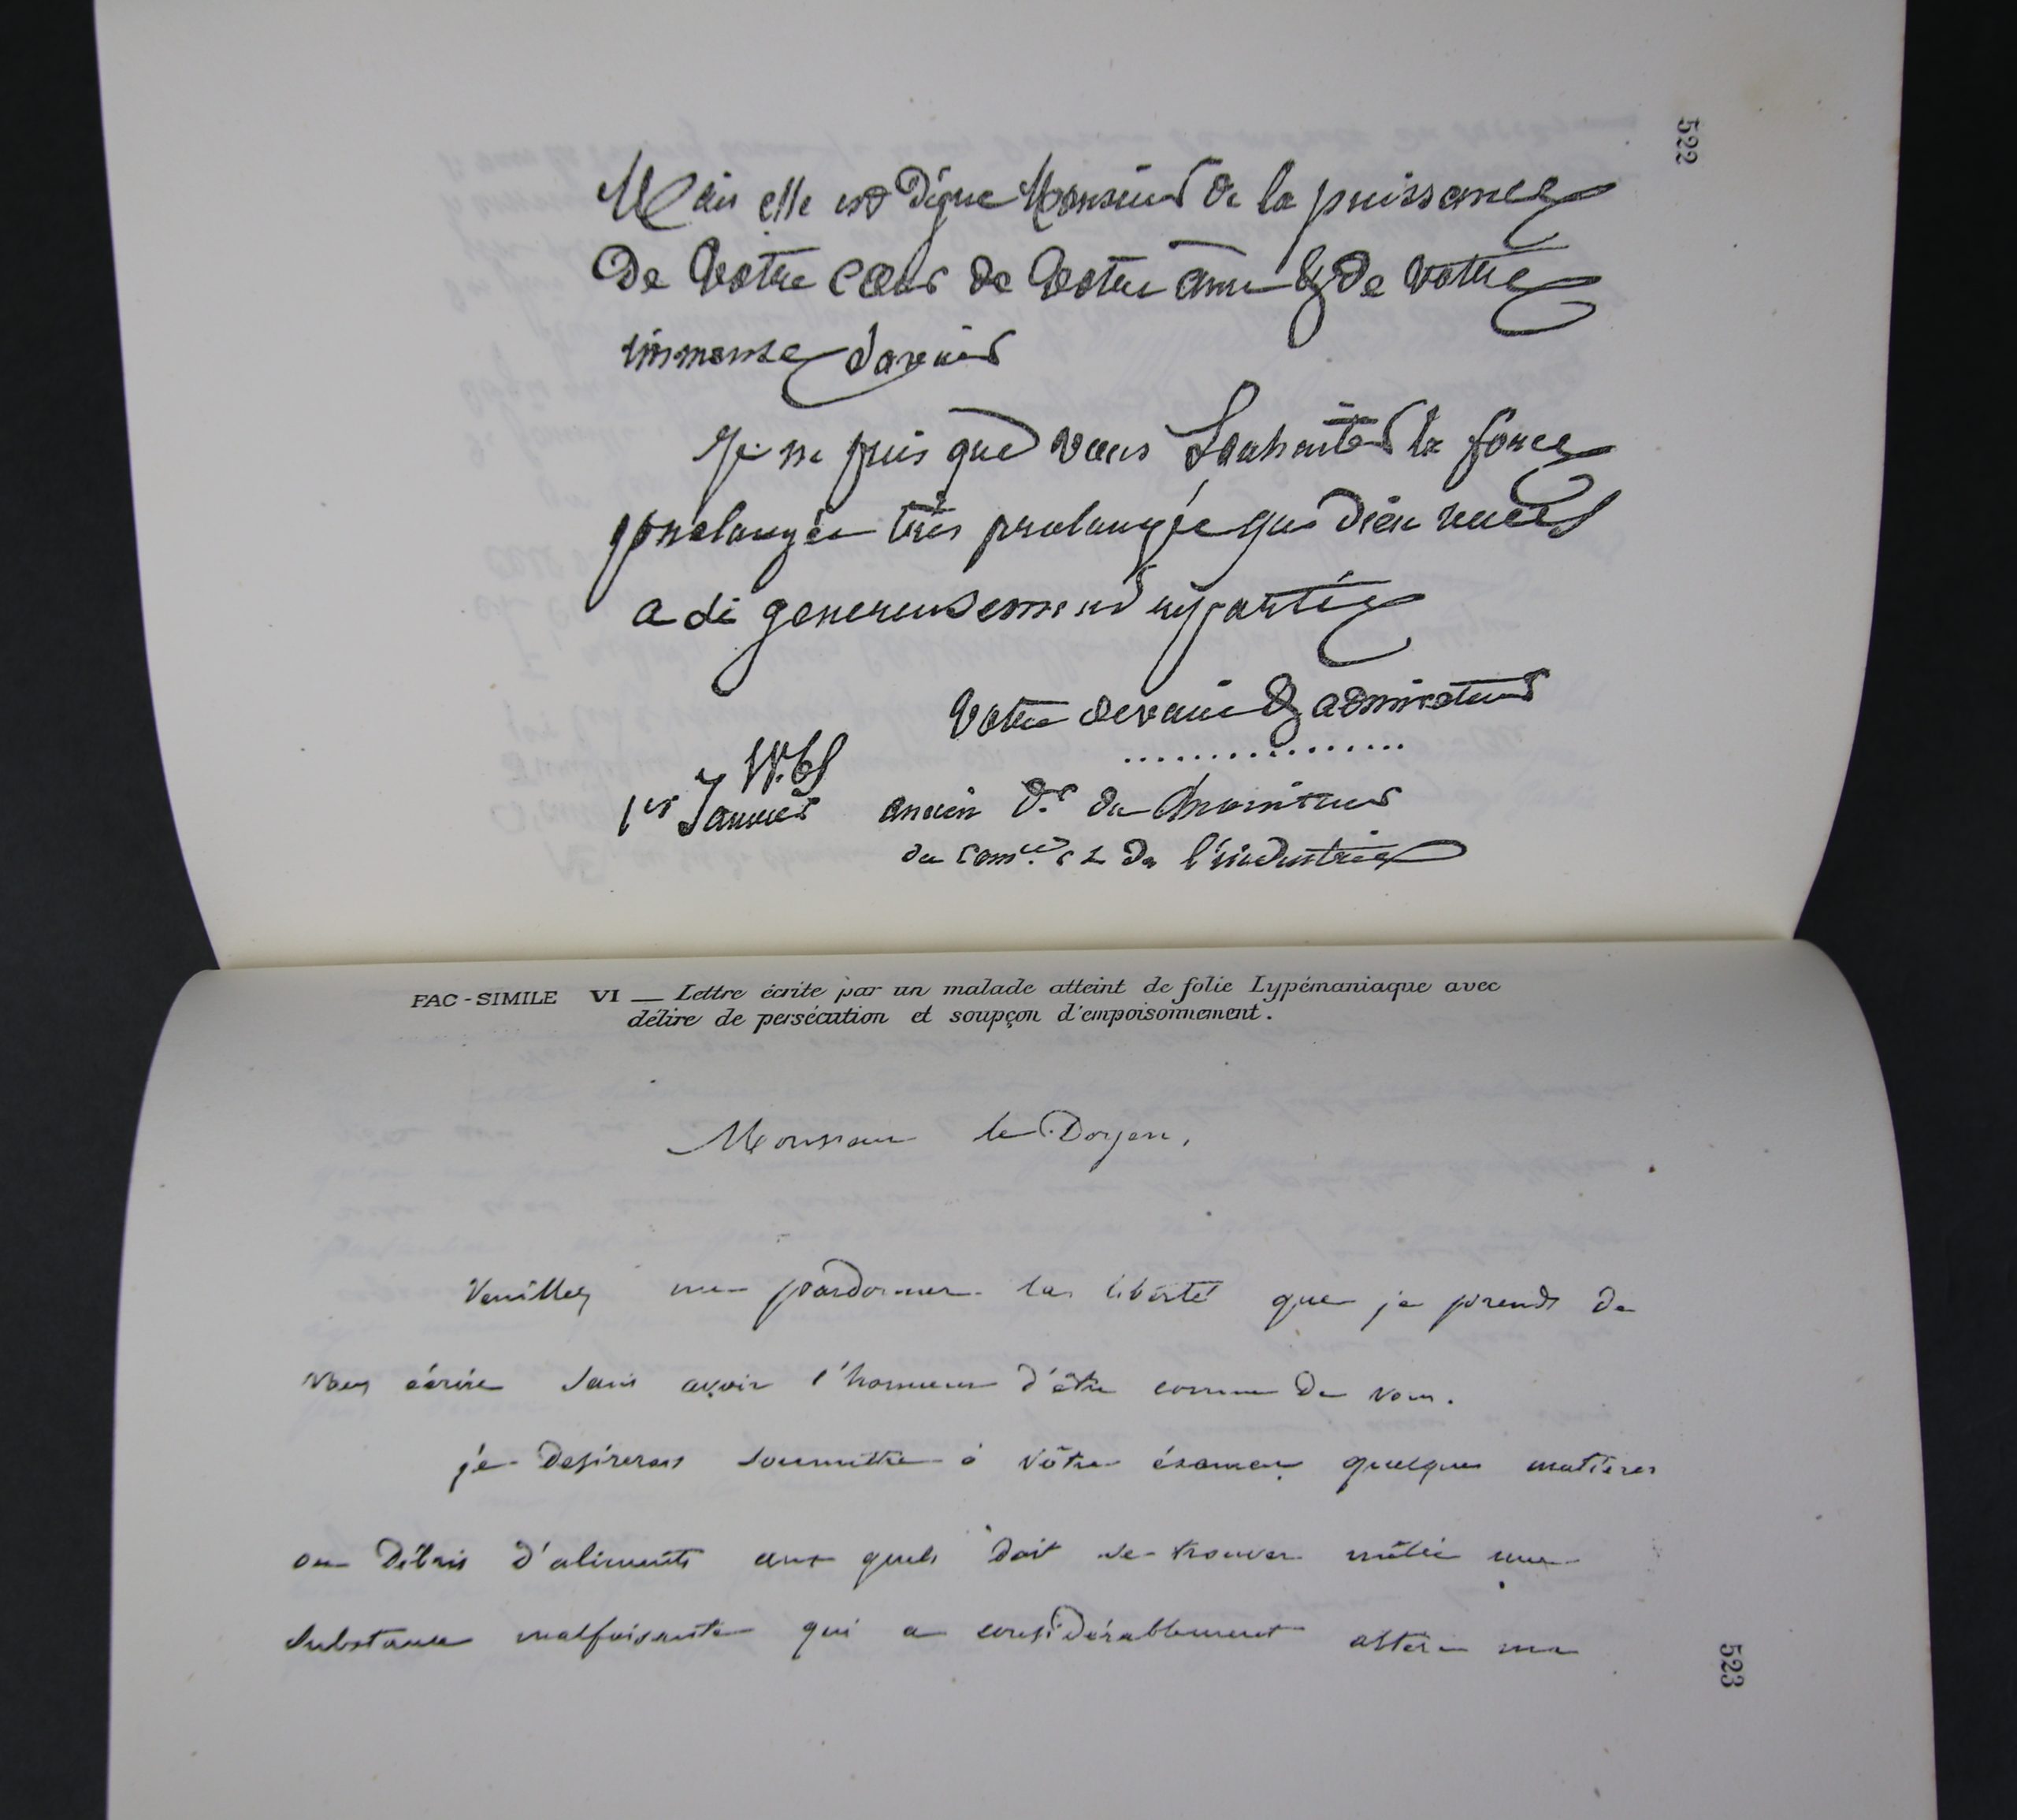 522
Mais elle est digne Monsieur de la puissance
De Votre cœur de Votre âme & de votre
immense savoir
Je ne puis que vous Souhaiter la force
prolongée très prolongée que Dieu vous
a si genereusement repartie
Votre devoué & admirateur
.................
1er Janvier
ancien Dr du Moniteur
du Comce & De l'industrie
FAC-SIMILE VI — Lettre écrite par un malade atteint de folie Lypémaniaque avec
délire de persécution et soupçon d'empoisonnement.
Monsieur le Doyen,
Veuillez me pardonner la liberté que je prends de
vous écrire sans avoir l'honneur d'être connu De vous.
je Desirerais soumettre à vôtre éxamen quelques matières
ou Débris d'aliments aux quels doit se trouver mêlée une
substance malfaisante qui a considérablement altéré ma
523